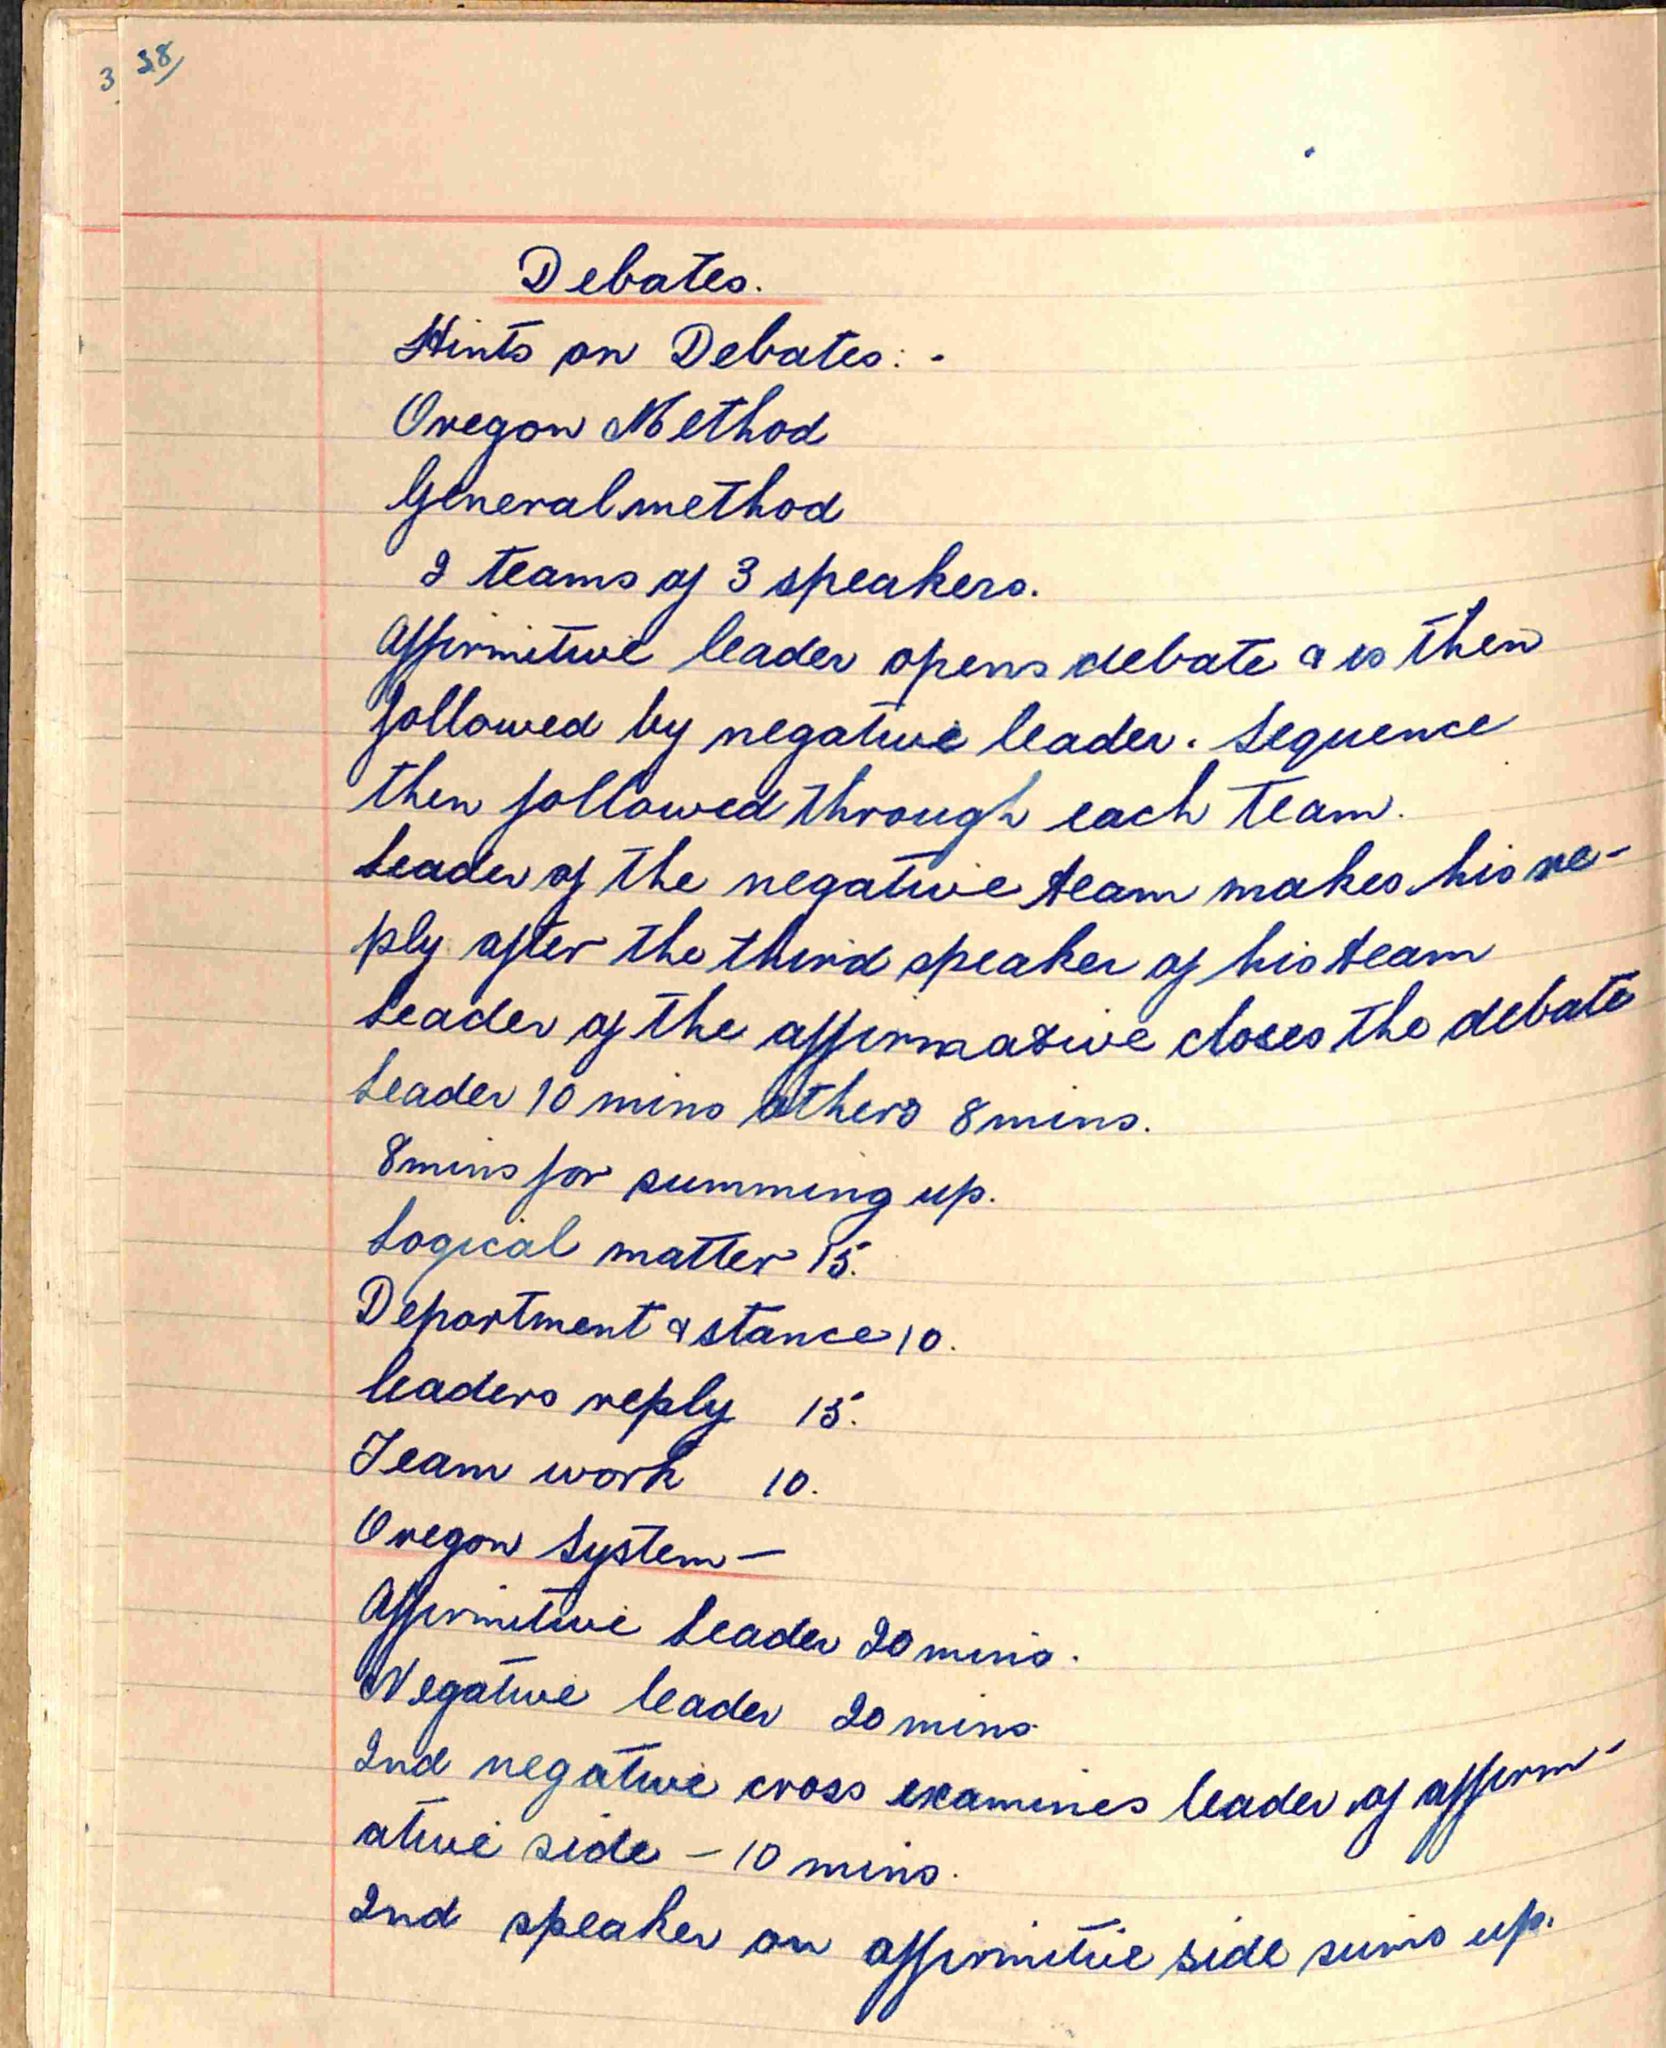 3 38/
Debates.
Hints on Debates: -
Oregon Method
General method
2 teams of 3 speakers.
Affirmitive leader opens debate & is then
followed by negative leader. Sequence
then followed through each team.
Leader of the negative team makes his re-
ply after the third speaker of his team
Leader of the affirmative closes the debate
Leader 10 mins others 8 mins.
8 mins for summing up.
Logical matter 15.
Department & stance 10.
leaders reply 15.
Team work 10.
Oregon System —
Affirmitive Leader 20 mins.
Negative leader 20 mins.
2nd negative cross examines leader of affirm-
ative side - 10 mins.
2nd speaker on affirmitive side sums up.